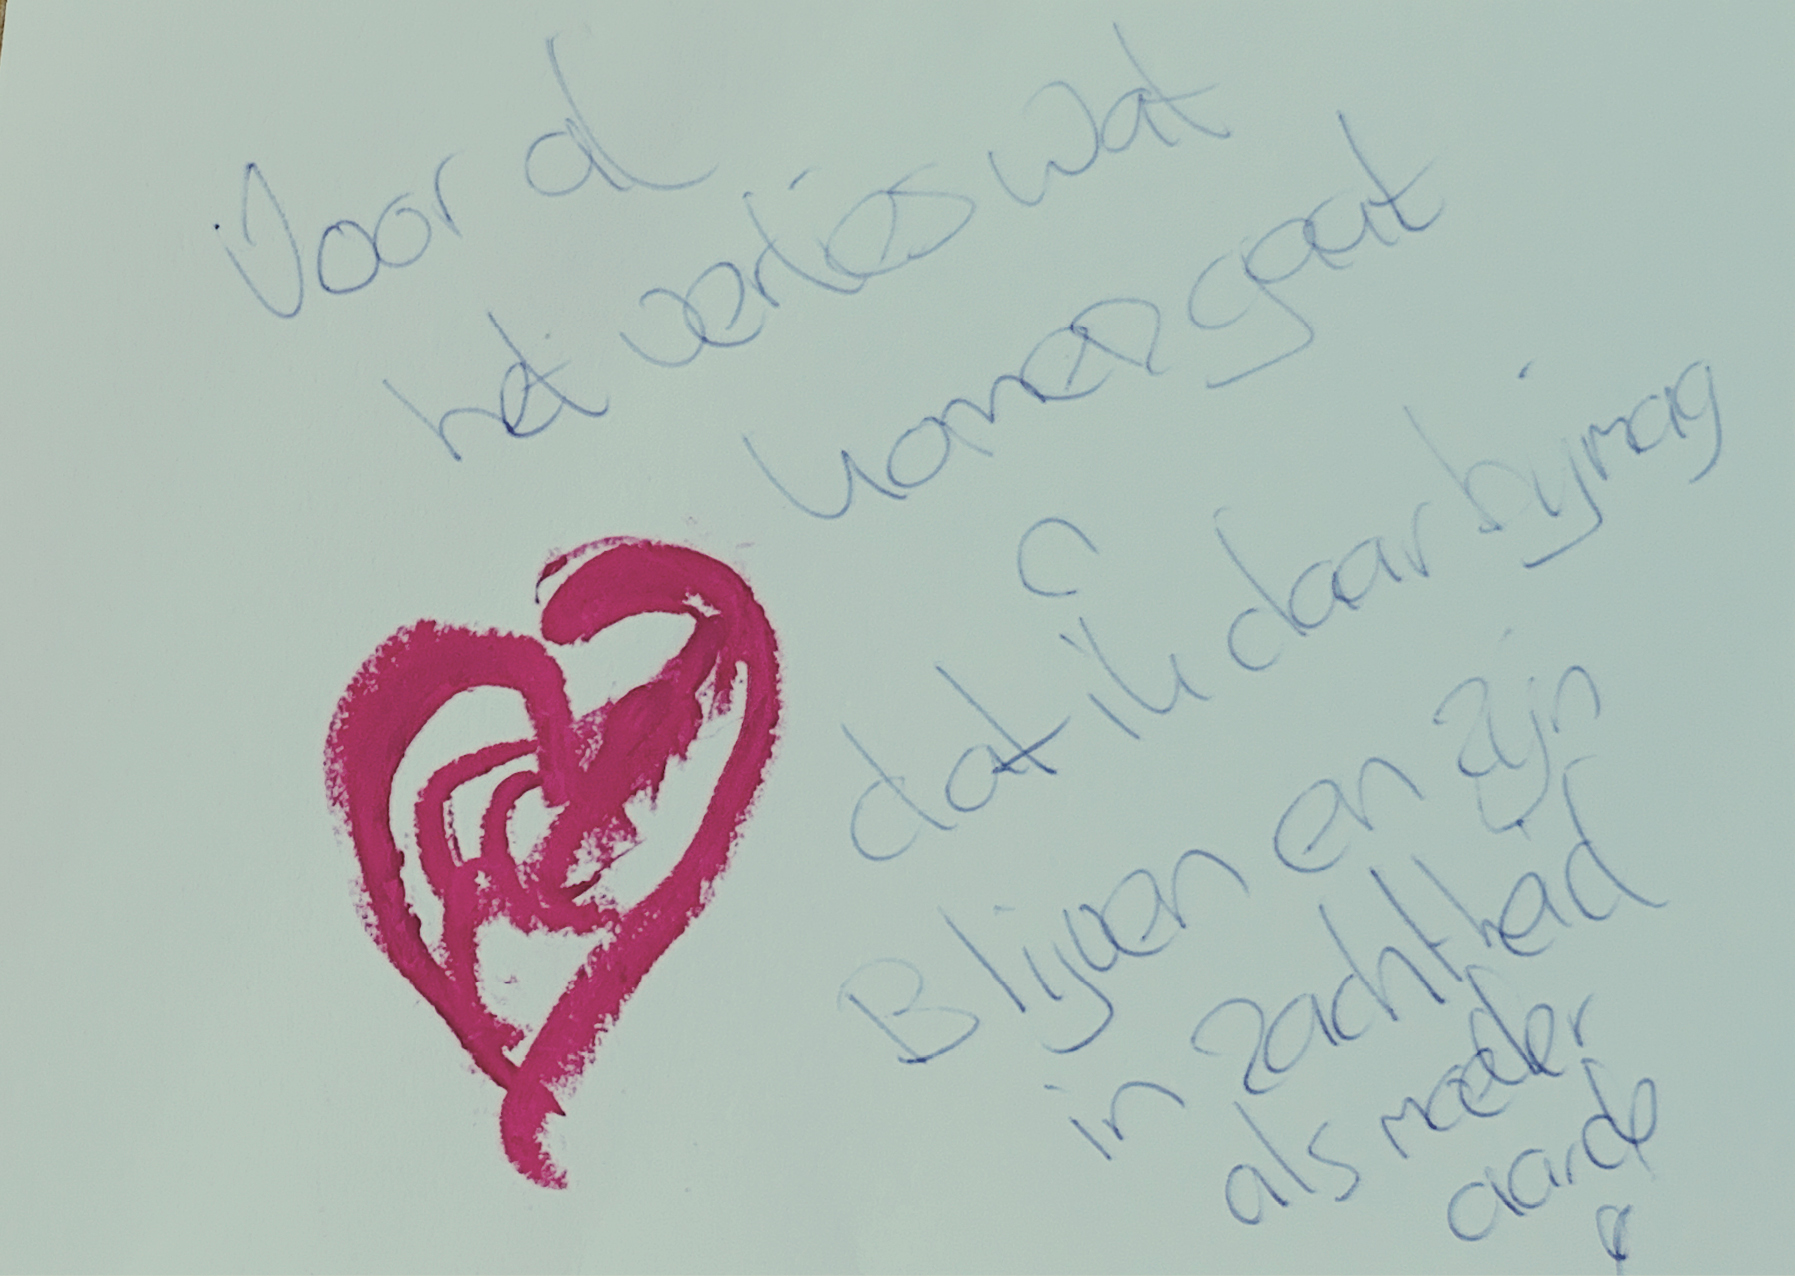 Voor al
het verlies wat
komen gaat
dat ik daar bij mag
Blijven en zijn
in zachtheid
als moeder
aarde